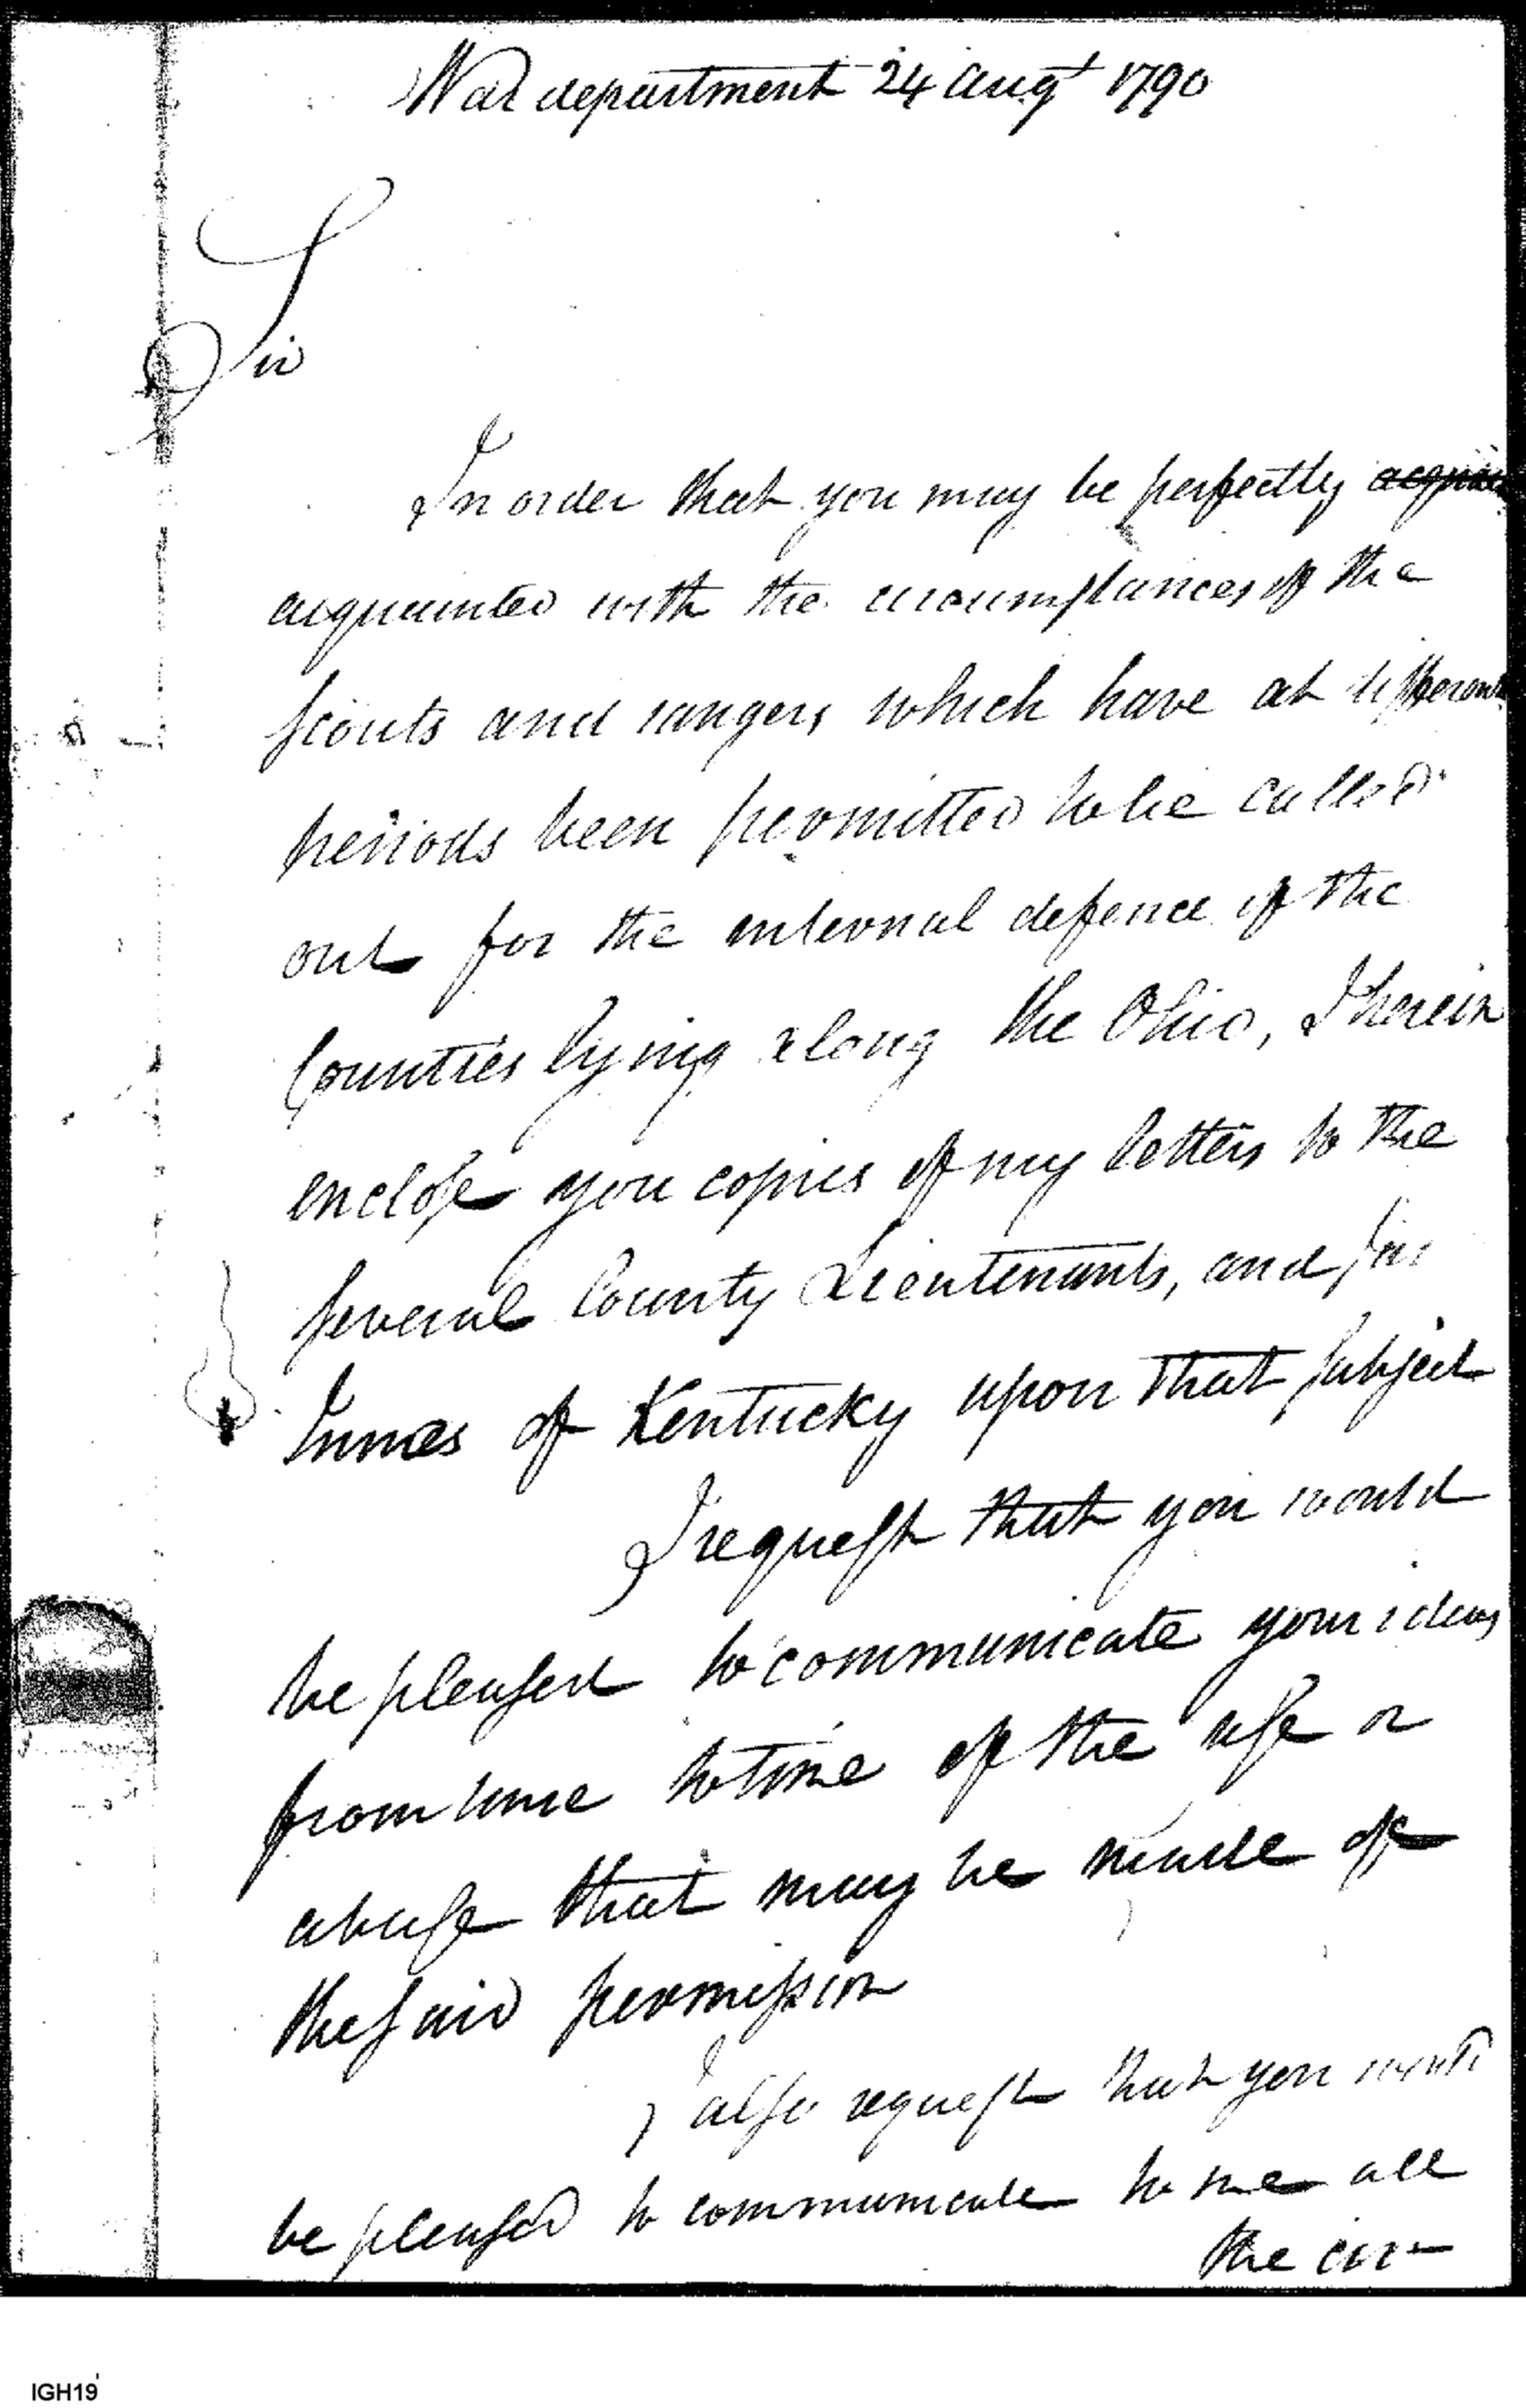 War department 24 Augt 1790
Sir
In order that you may be perfectly
acquainted with the circumstances of the
scouts and rangers which have at different
periods been permitted to be called
out for the internal defence of the
Counties lying along the Ohio, I herein
enclose you copies of my letters to the
several County Lieutenants, and
Innes of Kentucky upon that subject
I request that you would
be pleased to communicate your ideas
from time to time of the use or
abuse that may be made of
the said permission
I also request that you would
be pleased to communicate to me all
the cir-
IGH19